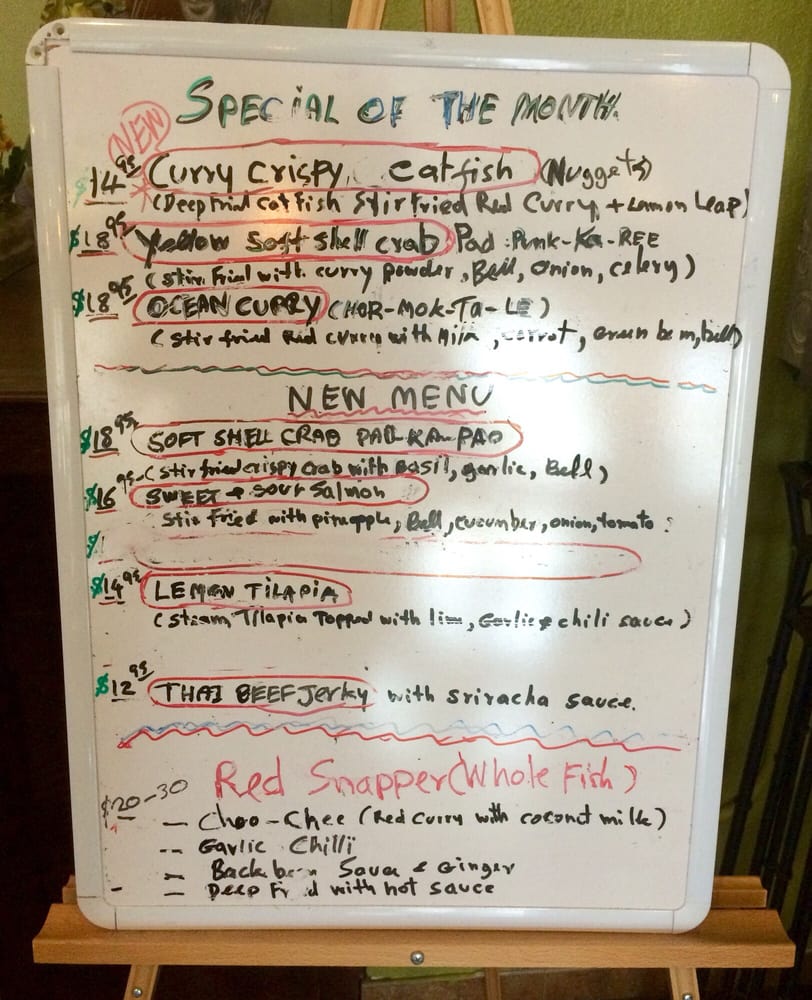 SPECIAL OF THE MONTH.
NEW
$14.95 Curry Crispy catfish (Nuggets)
(Deep Fried catfish Stir Fried Red Curry + Lemon Leap)
$18.95 Yellow Soft Shell crab Pad Punk-Ka-REE
(stir Fried with curry powder, Bell, onion, celery)
$18.95 OCEAN CURRY (HOR-MOK-TA-LE)
(stir fried Red curry with Milk, carrot, Green bean, bell)
NEW MENU
$18.95 SOFT SHELL CRAB PAD-KA-PAO
(stir fried crispy crab with Basil, garlic, Bell)
$16.95 SWEET & SOUR Salmon
Stir Fried with pineapple, Bell, cucumber, onion, tomato
$
$14.95 LEMON TILAPIA
(Steam Tilapia Topped with lime, Garlic & chili sauce)
$12.95 THAI BEEF Jerky with sriracha sauce.
Red Snapper (Whole Fish)
$20-30
— Choo-Chee (Red Curry with coconut milk)
-- Garlic Chilli
— Back bean Sauce & Ginger
— DEEP Fried with hot sauce